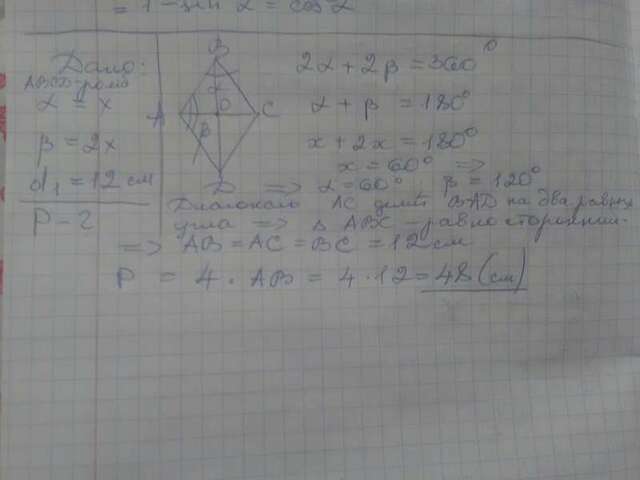 = 1 - sin α = cos α
Дано:
ABCD-ромб
α = x
β = 2x
d₁ = 12 см
P - ?
B
α
A O C
β
D
2α + 2β = 360°
α + β = 180°
x + 2x = 180°
x = 60° =>
=> α = 60° β = 120°
Диагональ AC делит BAD на два равных
угла => Δ ABC - равносторонний
=> AB = AC = BC = 12 см
P = 4 · AB = 4 · 12 = 48 (см)